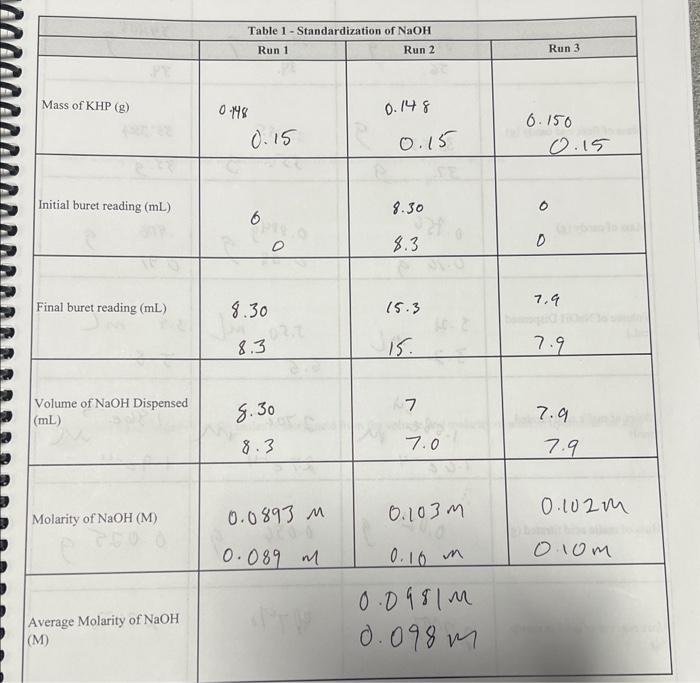 Table 1 - Standardization of NaOH
Run 1 Run 2 Run 3
Mass of KHP (g) 0.148 0.148 0.150
0.15 0.15 0.15
Initial buret reading (mL) 0 8.30 0
0 8.3 0
Final buret reading (mL) 8.30 15.3 7.9
8.3 15. 7.9
Volume of NaOH Dispensed 8.30 7 7.9
(mL) 8.3 7.0 7.9
Molarity of NaOH (M) 0.0893 M 0.103 M 0.102 M
0.089 M 0.10 M 0.10 M
Average Molarity of NaOH 0.0981 M
(M) 0.098 M